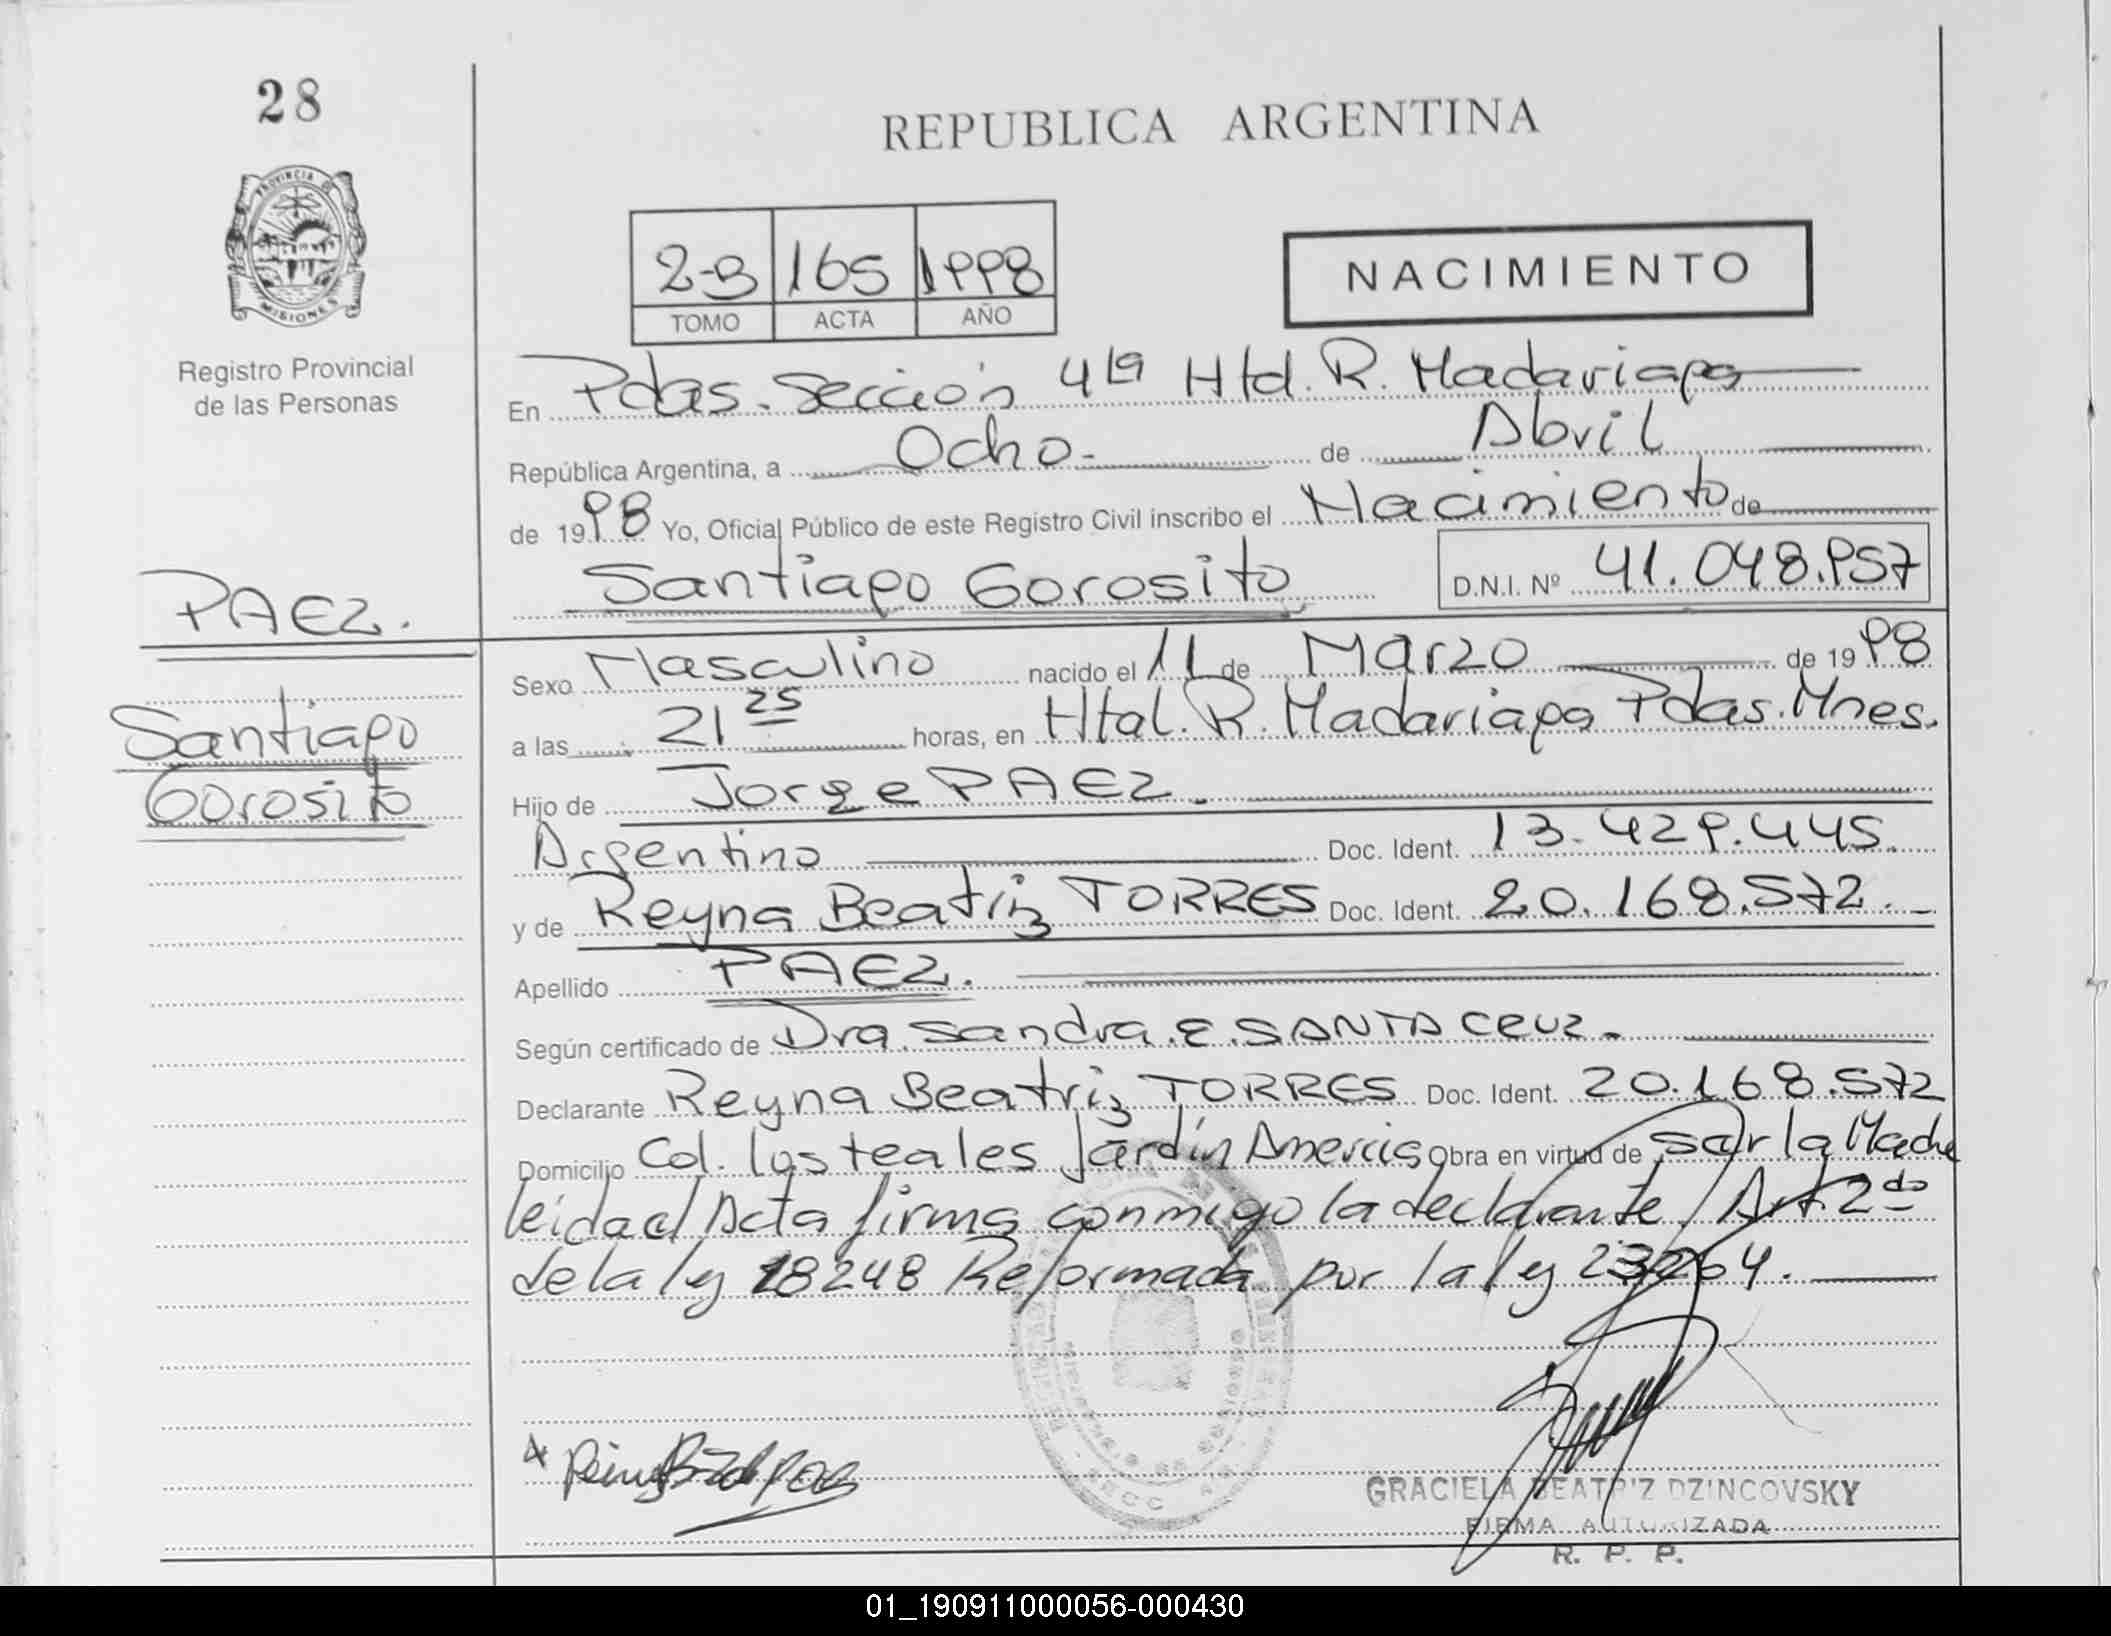 28
REPUBLICA ARGENTINA
PROVINCIA DE
MISIONES
2-B 165 1998
TOMO ACTA AÑO
NACIMIENTO
Registro Provincial
de las Personas
En Pdas. Sección 4ta Htd. R. Madariaga
República Argentina, a Ocho.- de Abril
de 1998 Yo, Oficial Público de este Registro Civil inscribo el Nacimiento de
Santiago Gorosito D.N.I. Nº 41.048.957
PAEZ.
Santiago
Gorosito
Sexo Masculino nacido el 11 de Marzo de 1998
a las 21 25 horas, en Htal. R. Madariaga Pdas. Mnes.
Hijo de Jorge PAEZ.
Argentino Doc. Ident. 13.429.445.
y de Reyna Beatriz TORRES Doc. Ident. 20.168.572.
Apellido PAEZ.
Según certificado de Dra. Sandra.E.SANTA CRUZ.
Declarante Reyna Beatriz TORRES Doc. Ident. 20.168.572
Domicilio Col. Los teales Jardín America Obra en virtud de ser la Madre
leida el Acta firma conmigo la declarante Art. 2do
de la ley 18248 Reformada por la ley 23264.
GRACIELA BEATRIZ DZINCOVSKY
FIRMA AUTORIZADA
R. P. P.
01_190911000056-000430